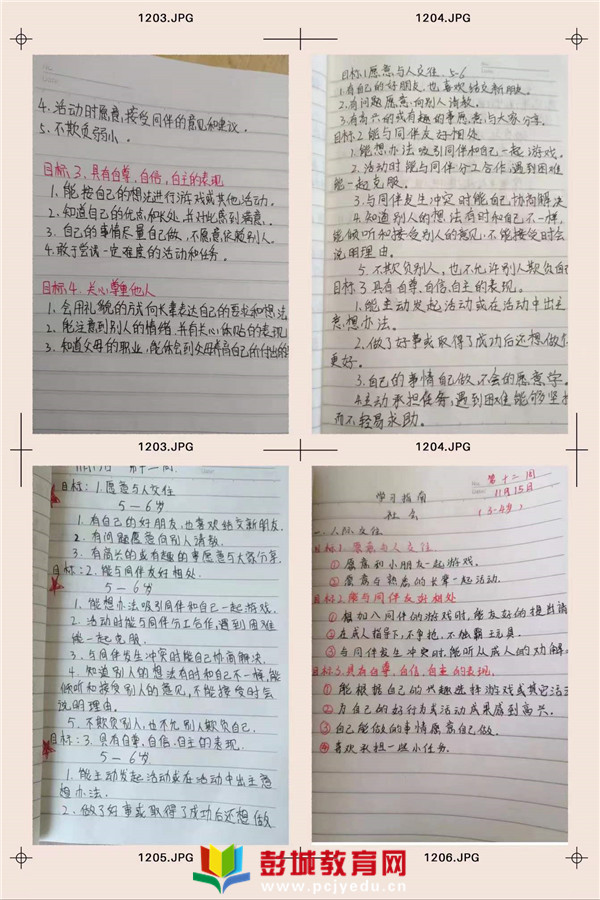 1203.JPG
1204.JPG
4. 活动时愿意接受同伴的意见和建议.
5. 不欺负弱小.
目标3. 具有自尊、自信、自主的表现
1. 能按自己的想法进行游戏或其他活动.
2. 知道自己的优点和长处, 并对此感到满意.
3. 自己的事情尽量自己做, 不愿意依赖别人.
4. 敢于尝试一定难度的活动和任务.
目标4. 关心尊重他人
1. 会用礼貌的方式向长辈表达自己的要求和想法
2. 能注意到别人的情绪, 并有关心体贴的表现
3. 知道父母的职业, 能体会到父母养育自己所付出的
目标1愿意与人交往. 5-6
1.有自己的好朋友,也喜欢结交新朋友.
2.有问题愿意向别人请教.
3.有高兴的或有趣的事愿意与大家分享.
目标2 能与同伴友好相处
1.能想办法吸引同伴和自己一起游戏.
2.活动时能与同伴分工合作,遇到困难
能一起克服.
3.与同伴发生冲突时能自己协商解决
4.知道别人的想法有时和自己不一样,
能倾听和接受别人的意见,不能接受时会
说明理由.
5.不欺负别人,也不允许别人欺负自己
目标3.具有自尊、自信、自主的表现.
1.能主动发起活动或在活动中出主
意、想办法.
2.做了好事或取得了成功后还想做
更好.
3.自己的事情自己做,不会的愿意学.
4.主动承担任务,遇到困难能够坚持
而不轻易求助.
1203.JPG
1204.JPG
第十二周.
目标: 1.愿意与人交往
5—6岁
1. 有自己的好朋友,也喜欢结交新朋友.
2. 有问题愿意向别人请教.
3. 有高兴的或有趣的事愿意与大家分享.
目标: 2. 能与同伴友好相处.
5—6岁
1. 能想办法吸引同伴和自己一起游戏.
2. 活动时能与同伴分工合作,遇到困难
能一起克服.
3. 与同伴发生冲突时能自己协商解决.
4. 知道别人的想法有时和自己不一样,能
倾听和接受别人的意见,不能接受时会
说明理由.
5. 不欺负别人,也不允别人欺负自己.
目标: 3. 具有自尊、自信、自主的表现.
5—6岁
1. 能主动发起活动或在活动中出主意
想办法.
2. 做了好事或取得了成功后还想做
第十二周
11月15日
学习指南
社会
(3-4岁)
一、人际交往
目标1. 愿意与人交往.
① 愿意和小朋友一起游戏.
② 愿意与熟悉的长辈一起活动.
目标2. 能与同伴友好相处
①想加入同伴的游戏时,能友好的提出请
②在成人指导下,不争抢、不独霸玩具.
③与同伴发生冲突时,能听从成人的劝解.
目标3. 具有自尊、自信、自主的表现.
① 能根据自己的兴趣选择游戏或其它活
② 为自己的好行为或活动成果感到高兴.
③自己能做的事情愿意自己做.
④喜欢承担一些小任务.
1205.JPG
1206.JPG
彭城教育网
www.pcjyedu.cn